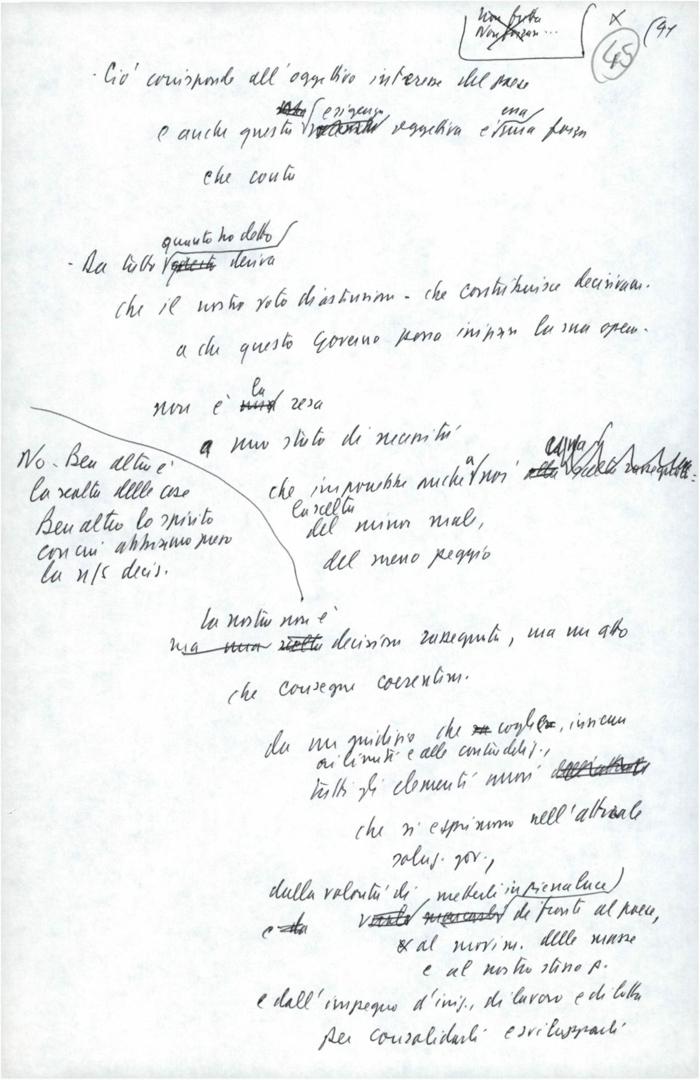 45
Ciò corrisponde all'oggettivo interesse del paese
esigenza
e anche questa oggettiva è una forza
che conta
quanto ho detto
- Da tutto deriva
che il nostro voto di astensione - che contribuisce decisivam.
a che questo Governo possa iniziare la sua opera -
la
non è resa
a uno stato di necessità
che imporrebbe anche a noi
la scelta
del minor male,
del meno peggio
No - Ben altra è
la realtà delle cose
Ben altro lo spirito
con cui abbiamo preso
la n/s decis.
la nostra non è
decisione rassegnata, ma un atto
che consegue coerentem.
da un giudizio che coglie, insieme
ai limiti e alle contraddiz.,
tutti gli elementi nuovi
che si esprimono nell'attuale
soluz. gov.,
dalla volontà di metterli in piena luce
e di fronte al paese,
al movim. delle masse
e al nostro stesso p.
e dall'impegno d'iniz., di lavoro e di lotta
per consolidarli e svilupparli